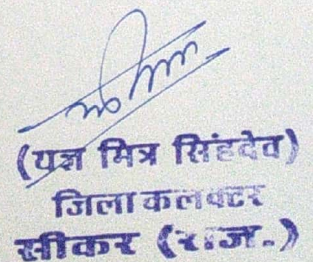 (यज्ञ मित्र सिंहदेव)
जिला कलक्टर
सीकर (राज.)